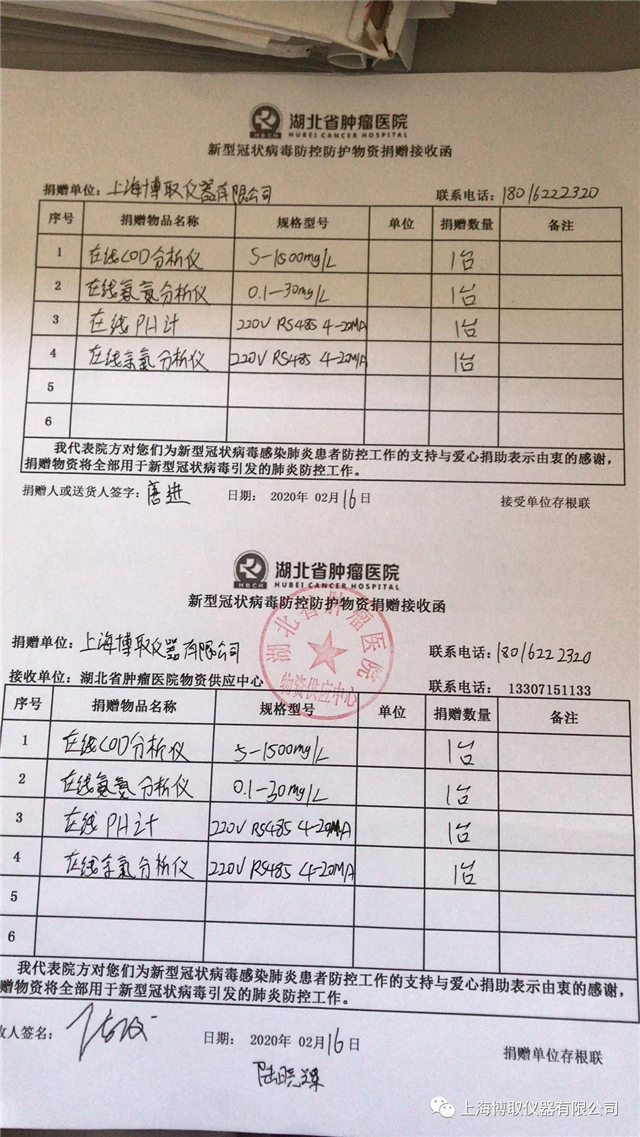 湖北省肿瘤医院
HBCH HUBEI CANCER HOSPITAL
新型冠状病毒防控防护物资捐赠接收函
捐赠单位：上海博取仪器有限公司 联系电话：18016222320
序号 捐赠物品名称 规格型号 单位 捐赠数量 备注
1 在线COD分析仪 5-1500mg/L 1台
2 在线氨氮分析仪 0.1-30mg/L 1台
3 在线PH计 220V RS485 4-20MA 1台
4 在线余氯分析仪 220V RS485 4-20MA 1台
5
6
我代表院方对您们为新型冠状病毒感染肺炎患者防控工作的支持与爱心捐助表示由衷的感谢，
捐赠物资将全部用于新型冠状病毒引发的肺炎防控工作。
捐赠人或送货人签字：唐进 日期： 2020年 02月16日 接受单位存根联
湖北省肿瘤医院
HBCH HUBEI CANCER HOSPITAL
新型冠状病毒防控防护物资捐赠接收函
捐赠单位：上海博取仪器有限公司 联系电话：18016222320
接收单位：湖北省肿瘤医院物资供应中心 联系电话： 13307151133
湖北省肿瘤医院
物资供应中心
序号 捐赠物品名称 规格型号 单位 捐赠数量 备注
1 在线COD分析仪 5-1500mg/L 1台
2 在线氨氮分析仪 0.1-30mg/L 1台
3 在线PH计 220V RS485 4-20MA 1台
4 在线余氯分析仪 220V RS485 4-20MA 1台
5
6
我代表院方对您们为新型冠状病毒感染肺炎患者防控工作的支持与爱心捐助表示由衷的感谢，
赠物资将全部用于新型冠状病毒引发的肺炎防控工作。
收人签名： 日期： 2020年 02月16日 捐赠单位存根联
上海博取仪器有限公司